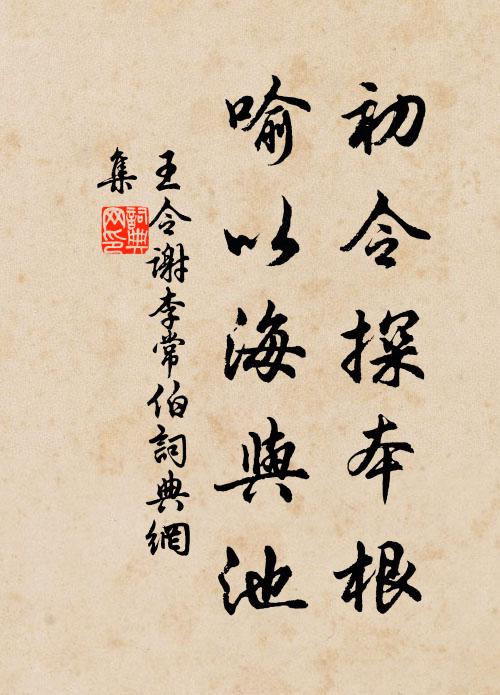 初令探本根
喻以海與池
王令谢李常伯詞典網
集
詞典
网印